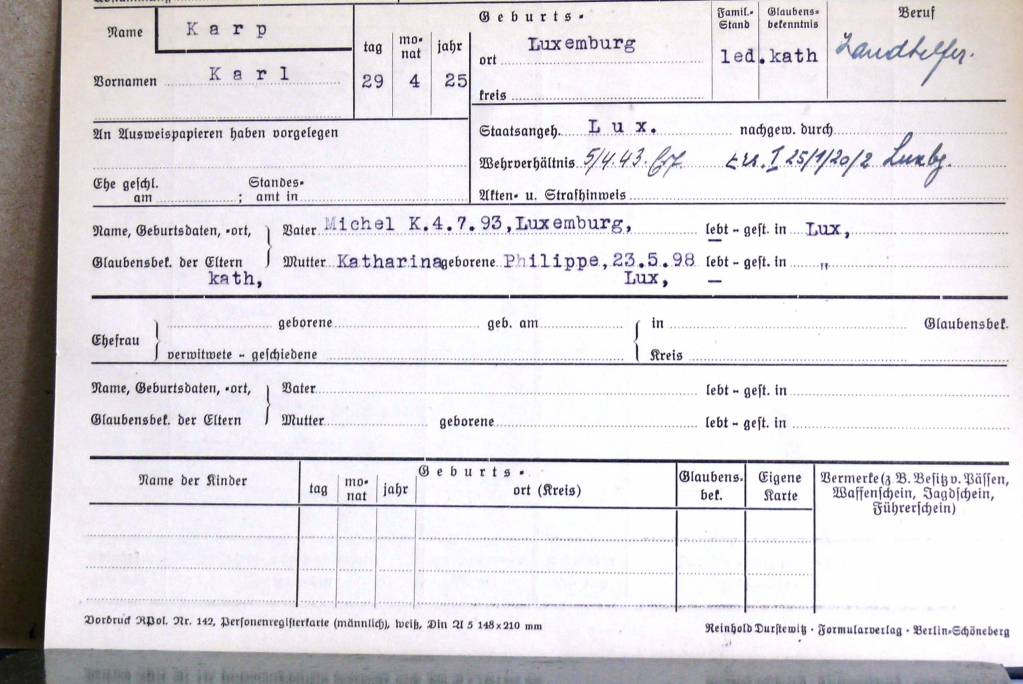 Name K a r p
Vornamen K a r l
tag mo-nat jahr
29 4 25
G e b u r t s -
ort Luxemburg
kreis
Famil.-Stand
led.
Glaubens-bekenntnis
kath
Beruf
Landhelfer.
An Ausweispapieren haben vorgelegen
Ehe geschl. am ; Standes-amt in
Staatsangeh. L u x. nachgew. durch
Wehrverhältnis 5/4.43. Ers. I 25/1/20/2 Luxbg.
Akten- u. Strafhinweis
Name, Geburtsdaten, -ort, Vater Michel K.4.7.93,Luxemburg, lebt - gest. in Lux,
Glaubensbek. der Eltern Mutter Katharina geborene Philippe,23.5.98 lebt - gest. in "
kath, Lux, —
Ehefrau geborene geb. am in Glaubensbek.
verwitwete - geschiedene Kreis
Name, Geburtsdaten, -ort, Vater lebt - gest. in
Glaubensbek. der Eltern Mutter geborene lebt - gest. in
Name der Kinder
G e b u r t s -
tag mo-nat jahr ort (Kreis)
Glaubens-bek.
Eigene Karte
Vermerke (z. B. Besitz v. Pässen,
Waffenschein, Jagdschein,
Führerschein)
Vordruck RPol. Nr. 142, Personenregisterkarte (männlich), weiß, Din A 5 148x210 mm
Reinhold Durstewitz · Formularverlag · Berlin-Schöneberg